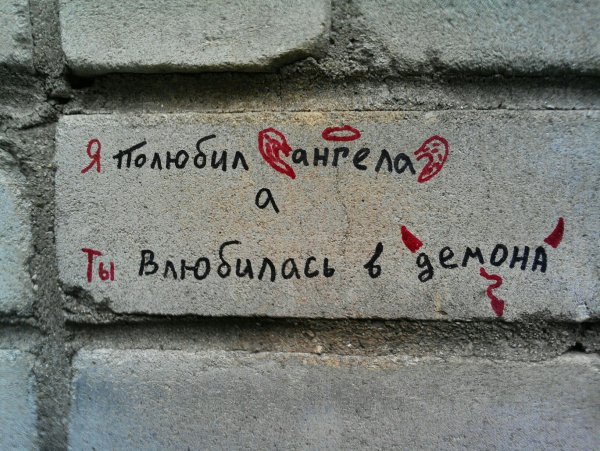 Я полюбил ангела
а
Ты влюбилась в демона